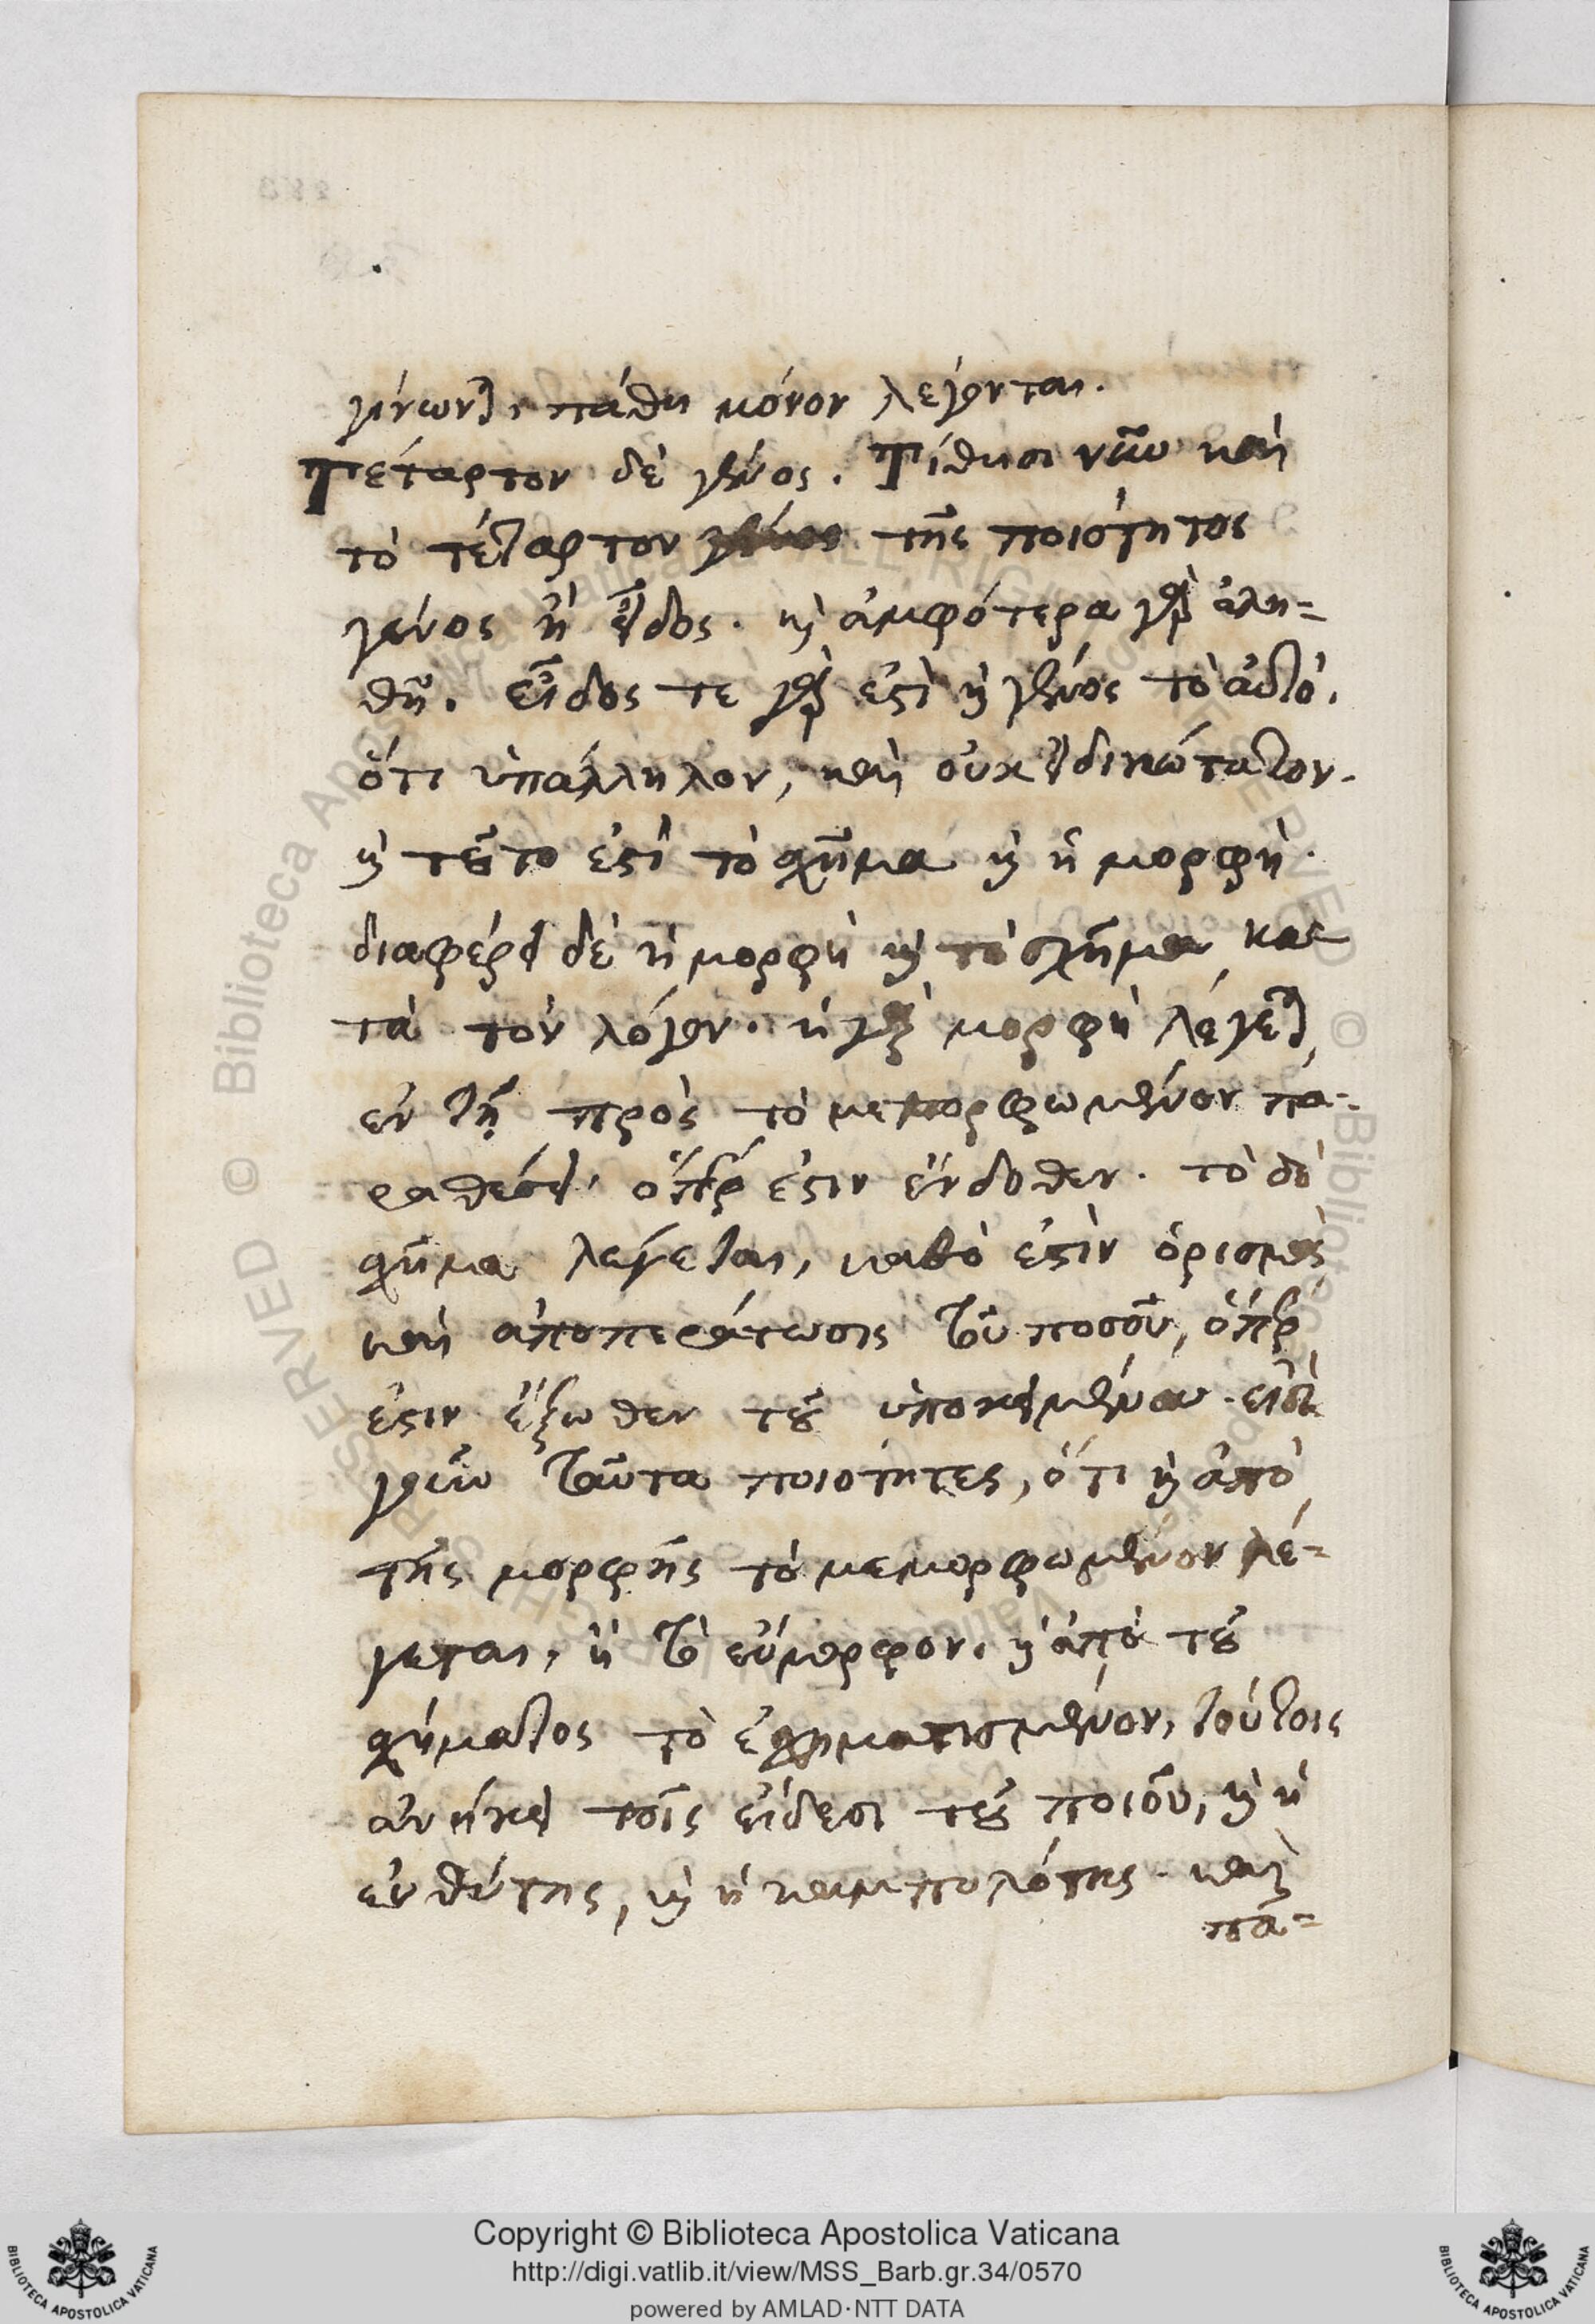 γίνωνται, πάθη μόνον λέγονται.
Τέταρτον δὲ γένος. Τίθησι νῦν καὶ
τὸ τέταρτον γένος τῆς ποιότητος
γένος ἢ εἶδος. καὶ ἀμφότερα γὰρ ἀλη=
θῆ. εἶδος τε γὰρ ἐστὶ καὶ γένος τὸ αὐτό.
ὅτι ὑπάλληλον, καὶ οὐκ εἰδικώτατον.
καὶ τοῦτο ἐστὶ τὸ σχῆμα καὶ ἡ μορφή.
διαφέρει δὲ ἡ μορφὴ καὶ τὸ σχῆμα κα
τὰ τὸν λόγον. ἡ γὰρ μορφὴ λέγεται
ἐν τῇ πρὸς τὸ μεμορφωμένον πα=
ραθέσει, ὅπερ ἐστιν ἔνδοθεν. τὸ δὲ
σχῆμα λέγεται, καθὸ ἐστὶν ὁρισμὸς
καὶ ἀποπεράτωσις τοῦ ποσοῦ, ὅπερ
ἐστιν ἔξωθεν τοῦ ὑποκειμένου. εἰσὶ
γοῦν ταῦτα ποιότητες, ὅτι καὶ ἀπὸ
τῆς μορφῆς τὸ μεμορφωμένον λέ=
γεται, ἢ τὸ εὔμορφον, καὶ ἀπὸ τοῦ
σχήματος τὸ ἐσχηματισμένον, τούτοις
ἀνήκει τοῖς εἴδεσι τοῦ ποιοῦ, καὶ ἡ
εὐθύτης, καὶ ἡ καμπυλότης. καὶ
πα=
Copyright © Biblioteca Apostolica Vaticana
http://digi.vatlib.it/view/MSS_Barb.gr.34/0570
powered by AMLAD·NTT DATA